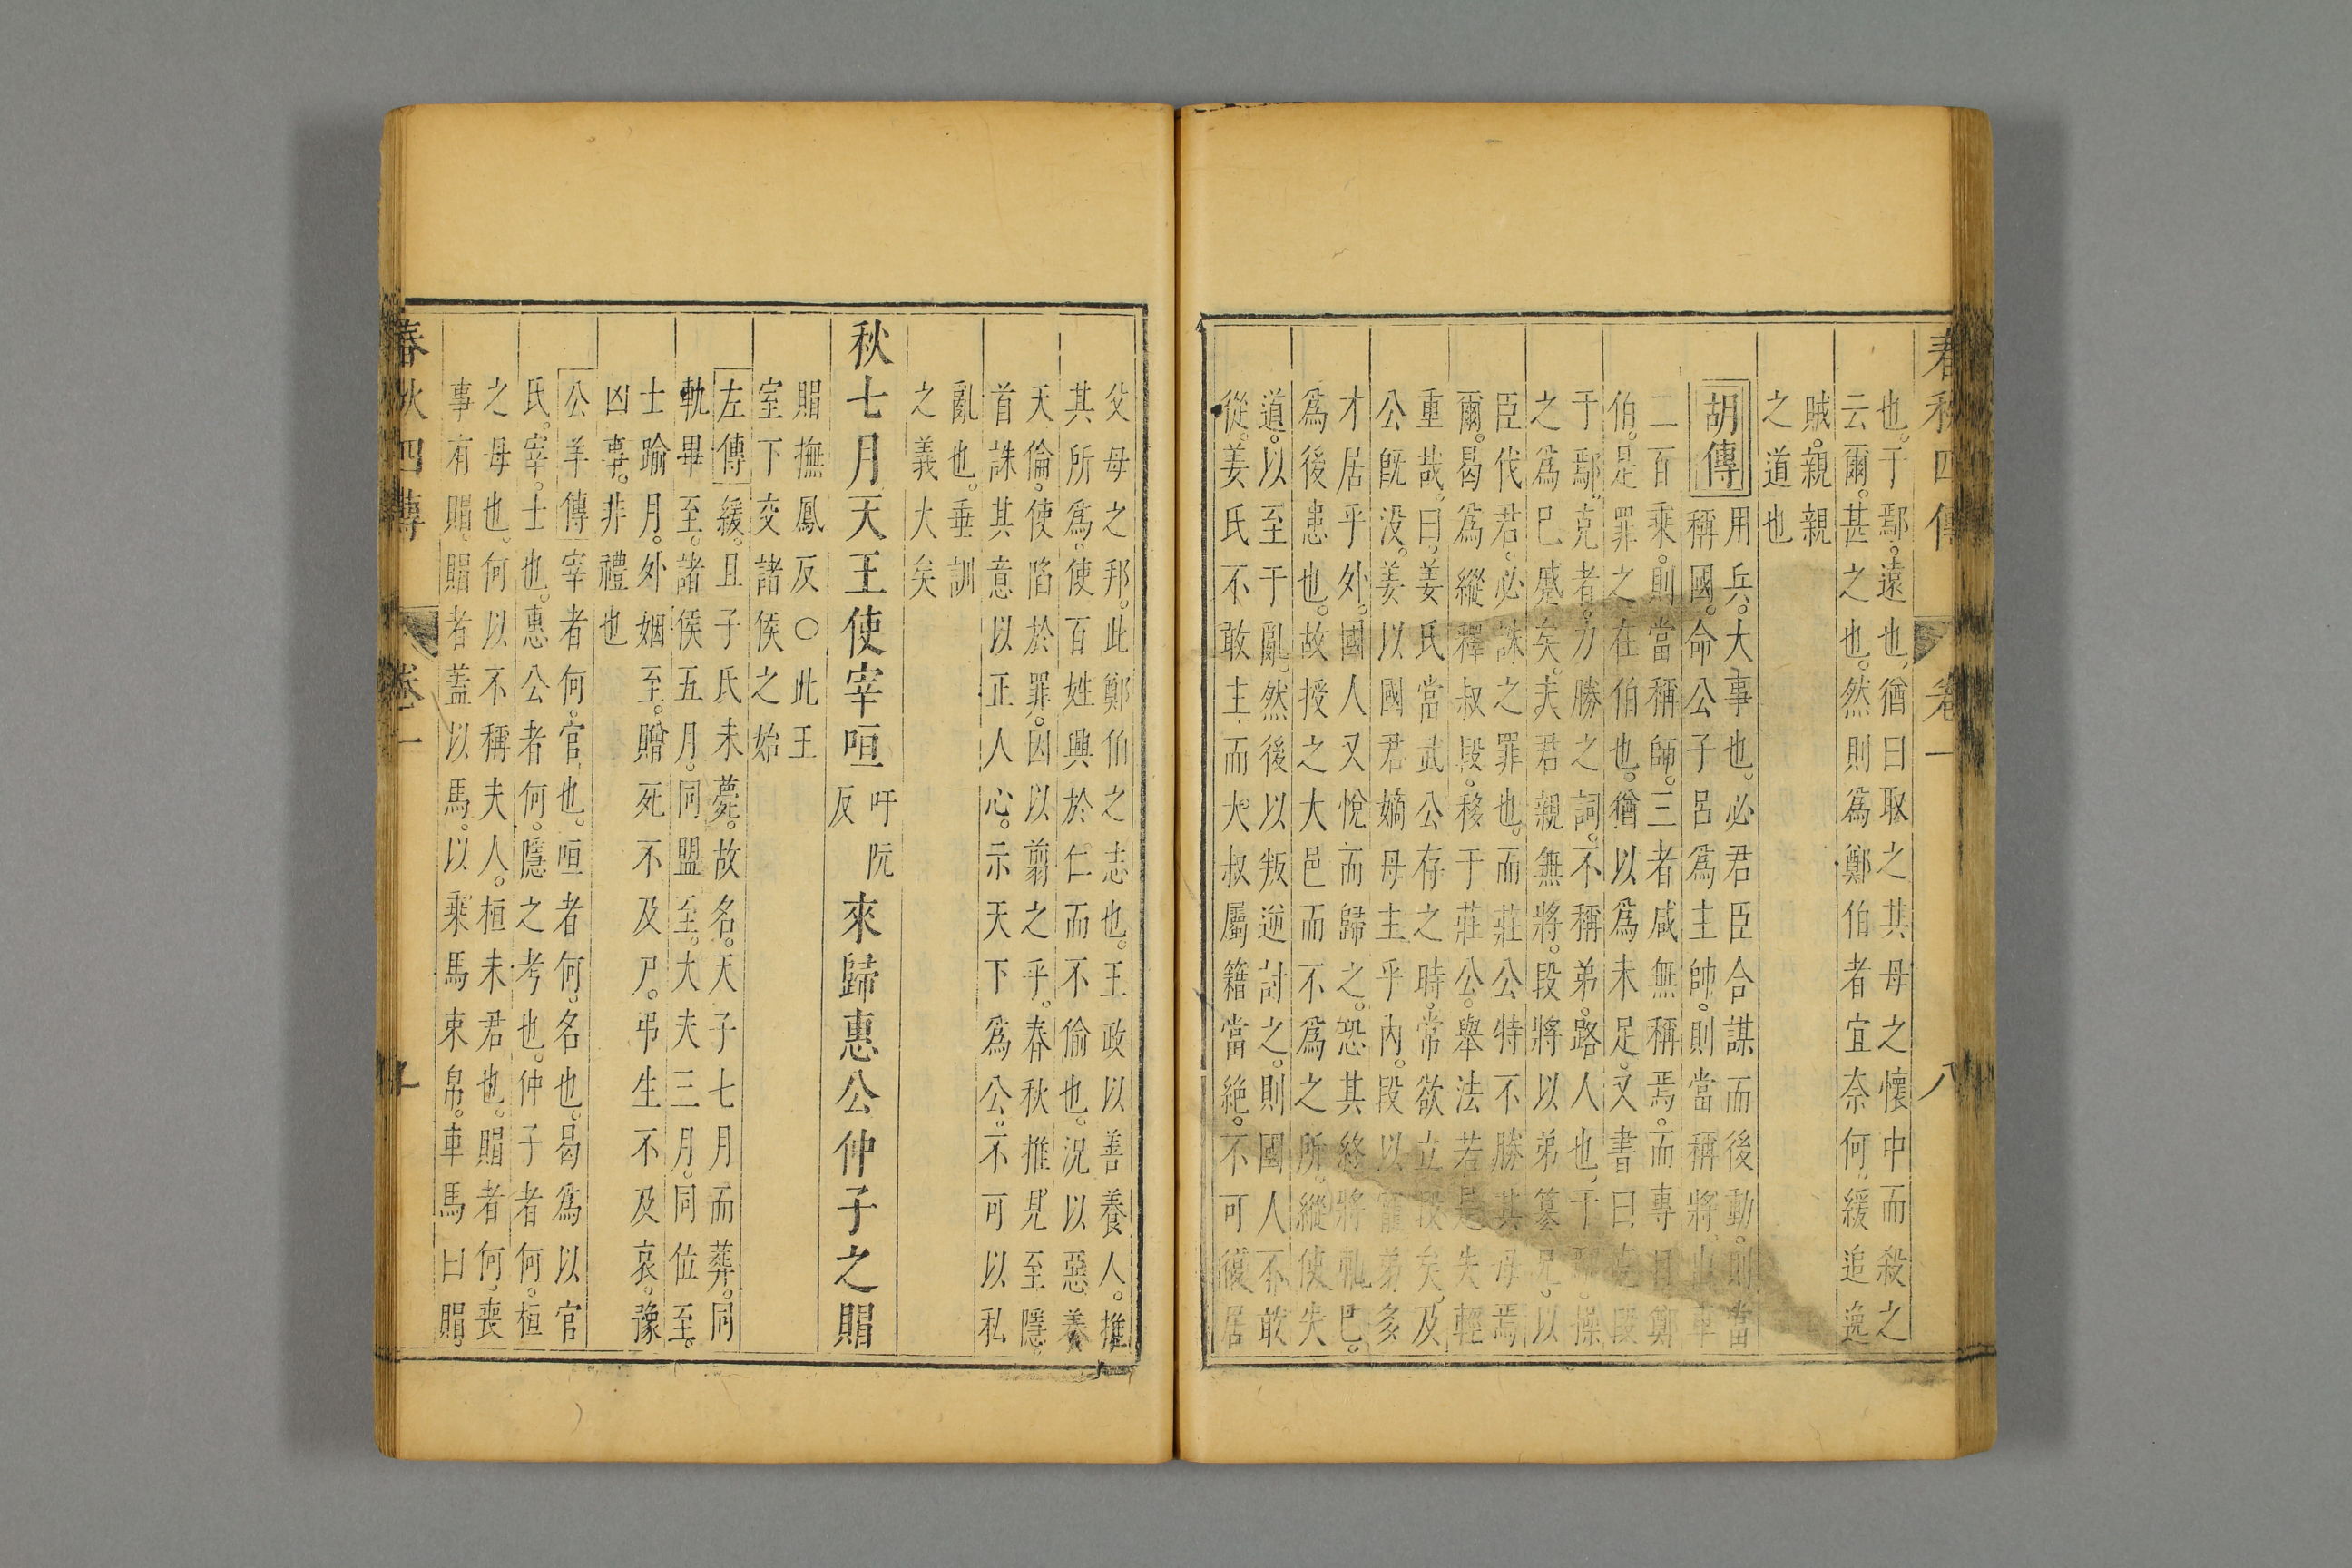 春秋四傳 卷一 八
也。于鄢。遠也、猶曰取之其母之懷中而殺之
云爾。甚之也。然則爲鄭伯者宜奈何。緩追逸
賊。親親
之道也
胡傳
用兵。大事也。必君臣合謀而後動。則當
稱國。命公子呂爲主帥。則當稱將。出車
二百乘。則當稱師。三者咸無稱焉。而專目鄭
伯。是罪之在伯也。猶以爲未足。又書曰克段
于鄢。克者。力勝之詞。不稱弟。路人也、于鄢。操
之爲已蹙矣。夫君親無將。段將以弟篡兄。以
臣伐君。必誅之罪也。而莊公特不勝其母焉
爾。曷爲縱釋叔段。移于莊公。舉法若是失輕
重哉。曰。姜氏當武公存之時。常欲立段矣。及
公旣没。姜以國君嫡母主乎內。段以寵弟多
才居乎外。國人又悅而歸之。恐其終將軋己。
爲後患也。故授之大邑而不爲之所。縱使失
道。以至于亂。然後以叛逆討之。則國人不敢
從。姜氏不敢主而大叔屬籍當絶。不可復居
父母之邦。此鄭伯之志也。王政以善養人。推
其所爲。使百姓興於仁而不偷也。況以惡養
天倫。使陷於罪。因以翦之乎。春秋推見至隱。
首誅其意以正人心。示天下爲公。不可以私
亂也。垂訓
之義大矣
秋七月天王使宰咺吁阮反來歸惠公仲子之賵
賵撫鳳反○此王
室下交諸侯之始
左傳緩。且子氏未薨。故名。天子七月而葬。同
軌畢至。諸侯五月。同盟至。大夫三月。同位至。
士踰月。外姻至。贈死不及尸。弔生不及哀。豫
凶事。非禮也
公羊傳宰者何。官也。咺者何。名也。曷爲以官
氏。宰。士也。惠公者何。隱之考也。仲子者何。桓
之母也。何以不稱夫人。桓未君也。賵者何。喪
事有賵。賵者蓋以馬。以乘馬束帛。車馬曰賵。
春秋四傳 卷一 九